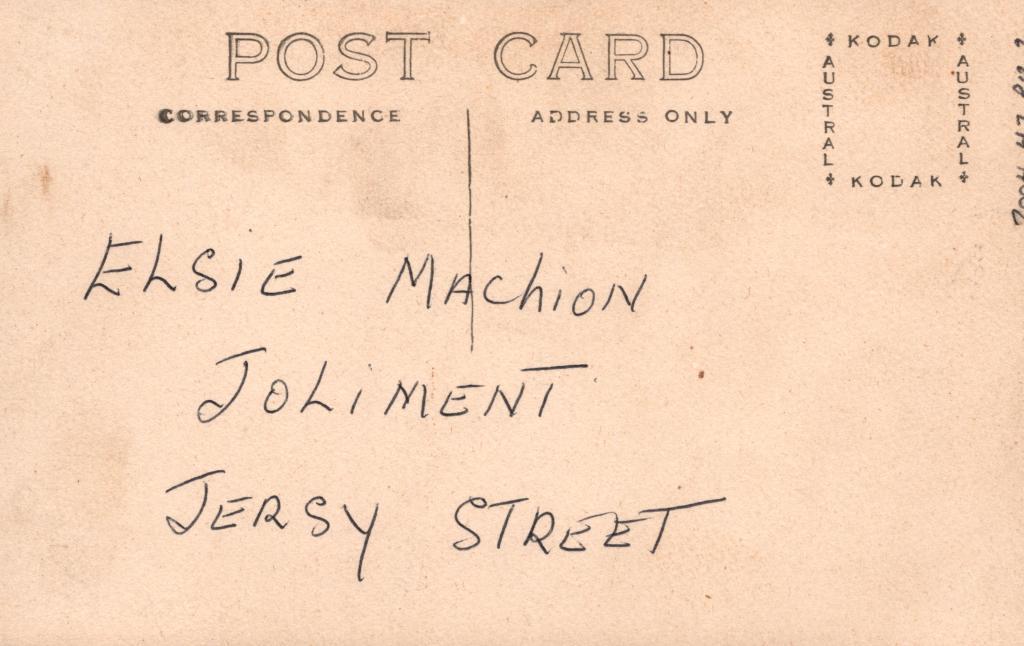 POST CARD
CORRESPONDENCE
ADDRESS ONLY
KODAK
AUSTRAL
AUSTRAL
KODAK
ELSIE MAChION
JOLIMENT
JERSY STREET